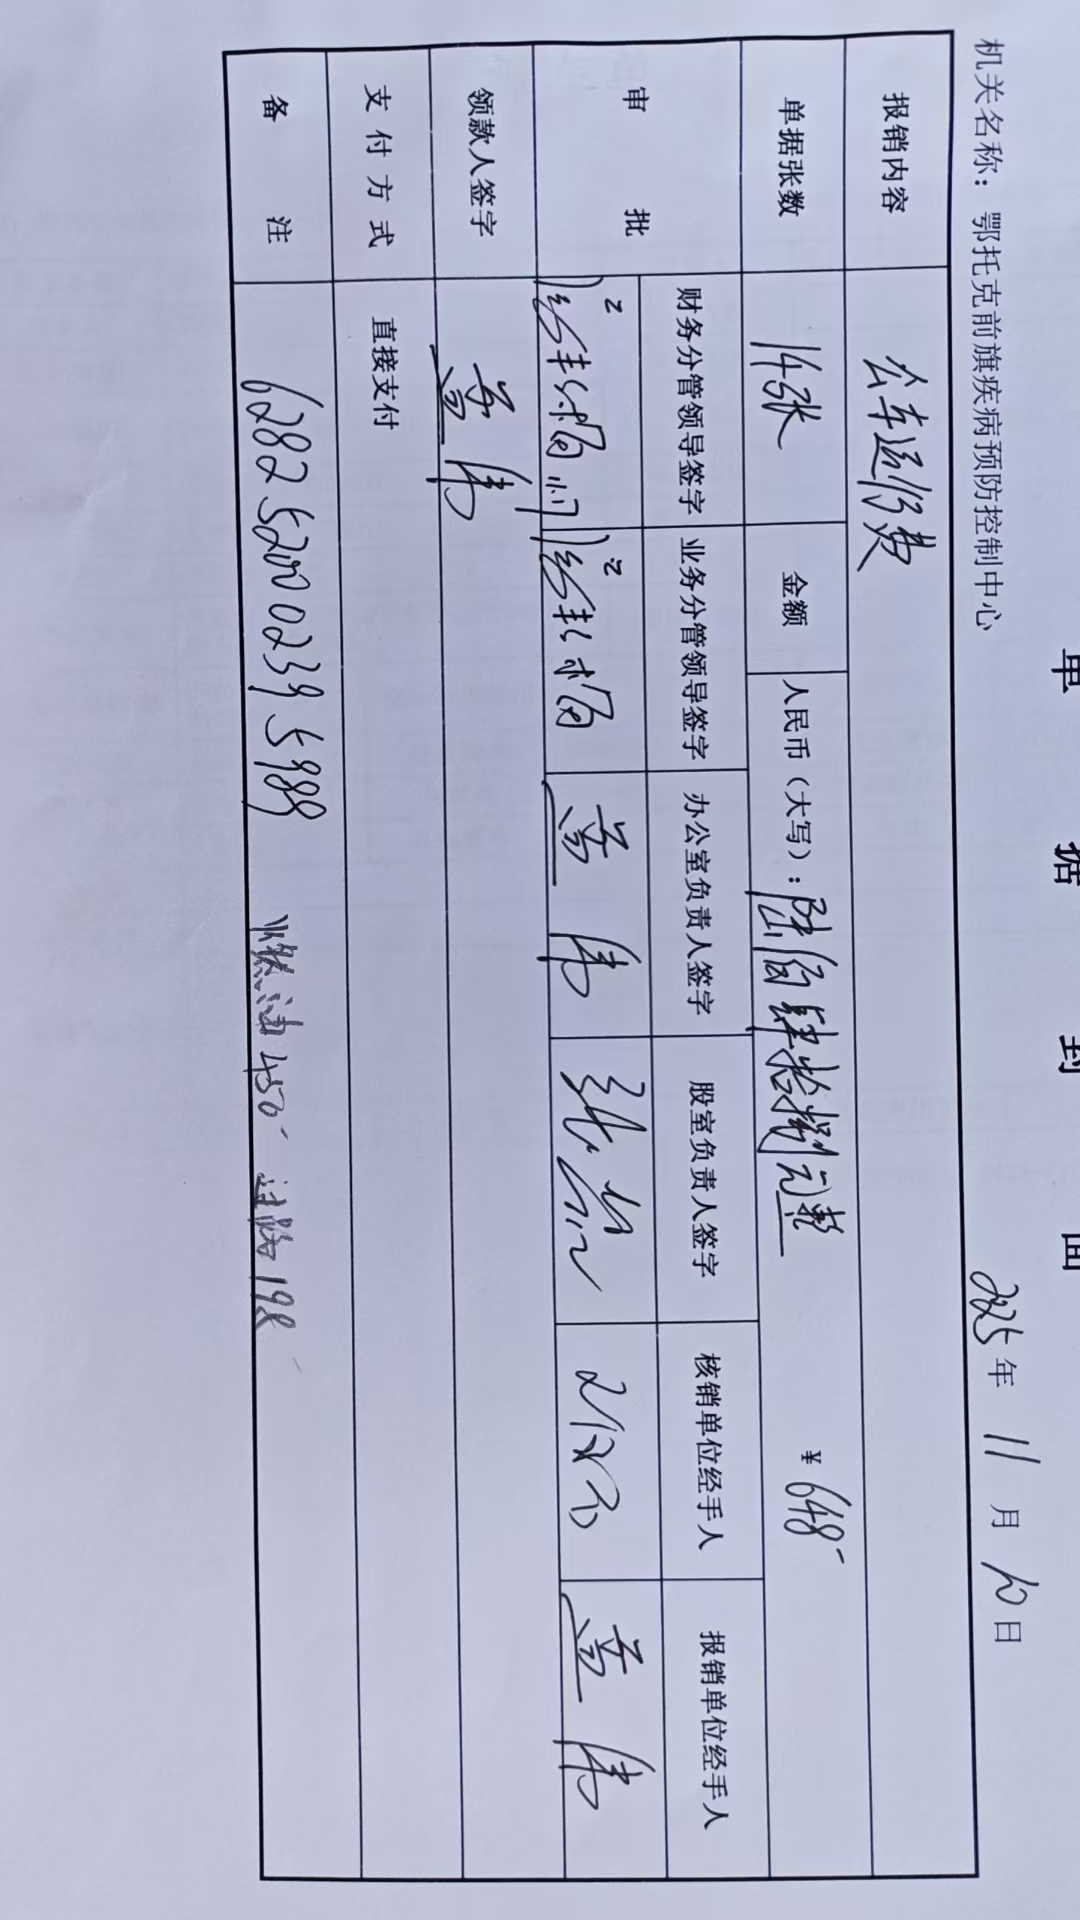 单 据 封 面
机关名称：鄂托克前旗疾病预防控制中心 2025年 11月 10日
报销内容 公车运行费
单据张数 14张 金额 人民币（大写）：陆佰肆拾捌元整 ¥ 648-
审 批 财务分管领导签字 业务分管领导签字 办公室负责人签字 股室负责人签字 核销单位经手人 报销单位经手人
领款人签字
支付方式 直接支付
备 注 6282 5200 0239 5989 燃油450- 过路198